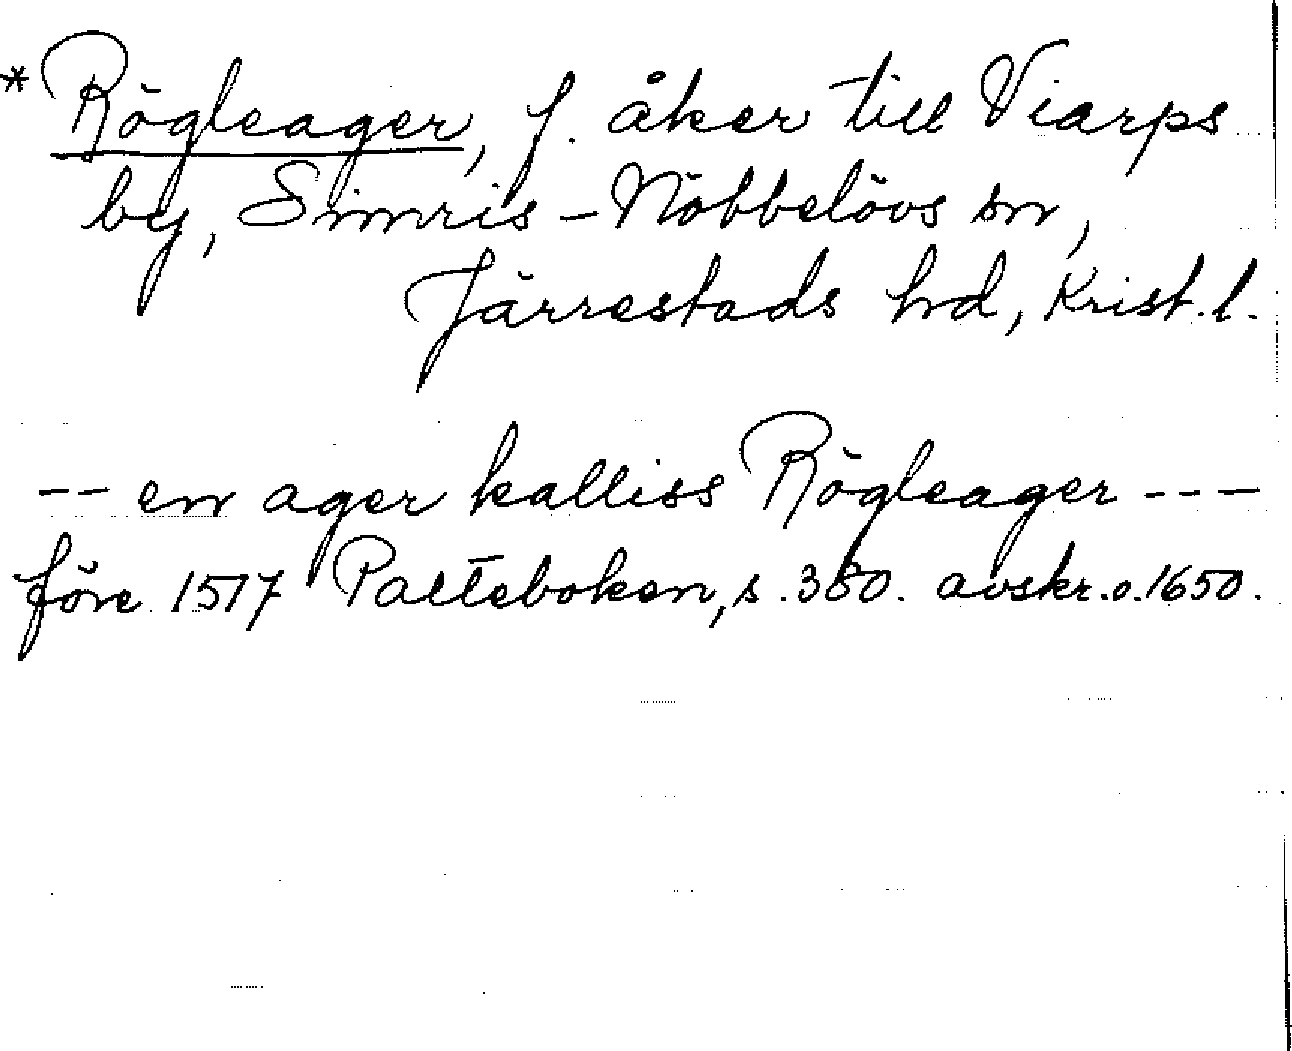 * Rögleager, f. åker till Viarps
by, Simris-Nöbbelövs sn,
Järrestads hd, Krist. l.
-- en ager kalliss Rögleager ---
före 1517 Palteboken, s. 380. avskr. o. 1650.